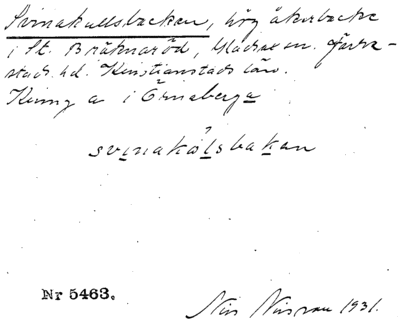 Svinakullsbacken, hög åkerbacke
i St. Bråknaröd, Gladsax sn. Järre-
stads hd. Kristianstads län.
Kring a i Örnaberga
svinakolsbakan
Nr 5463.
Nils Nilsson 1931.